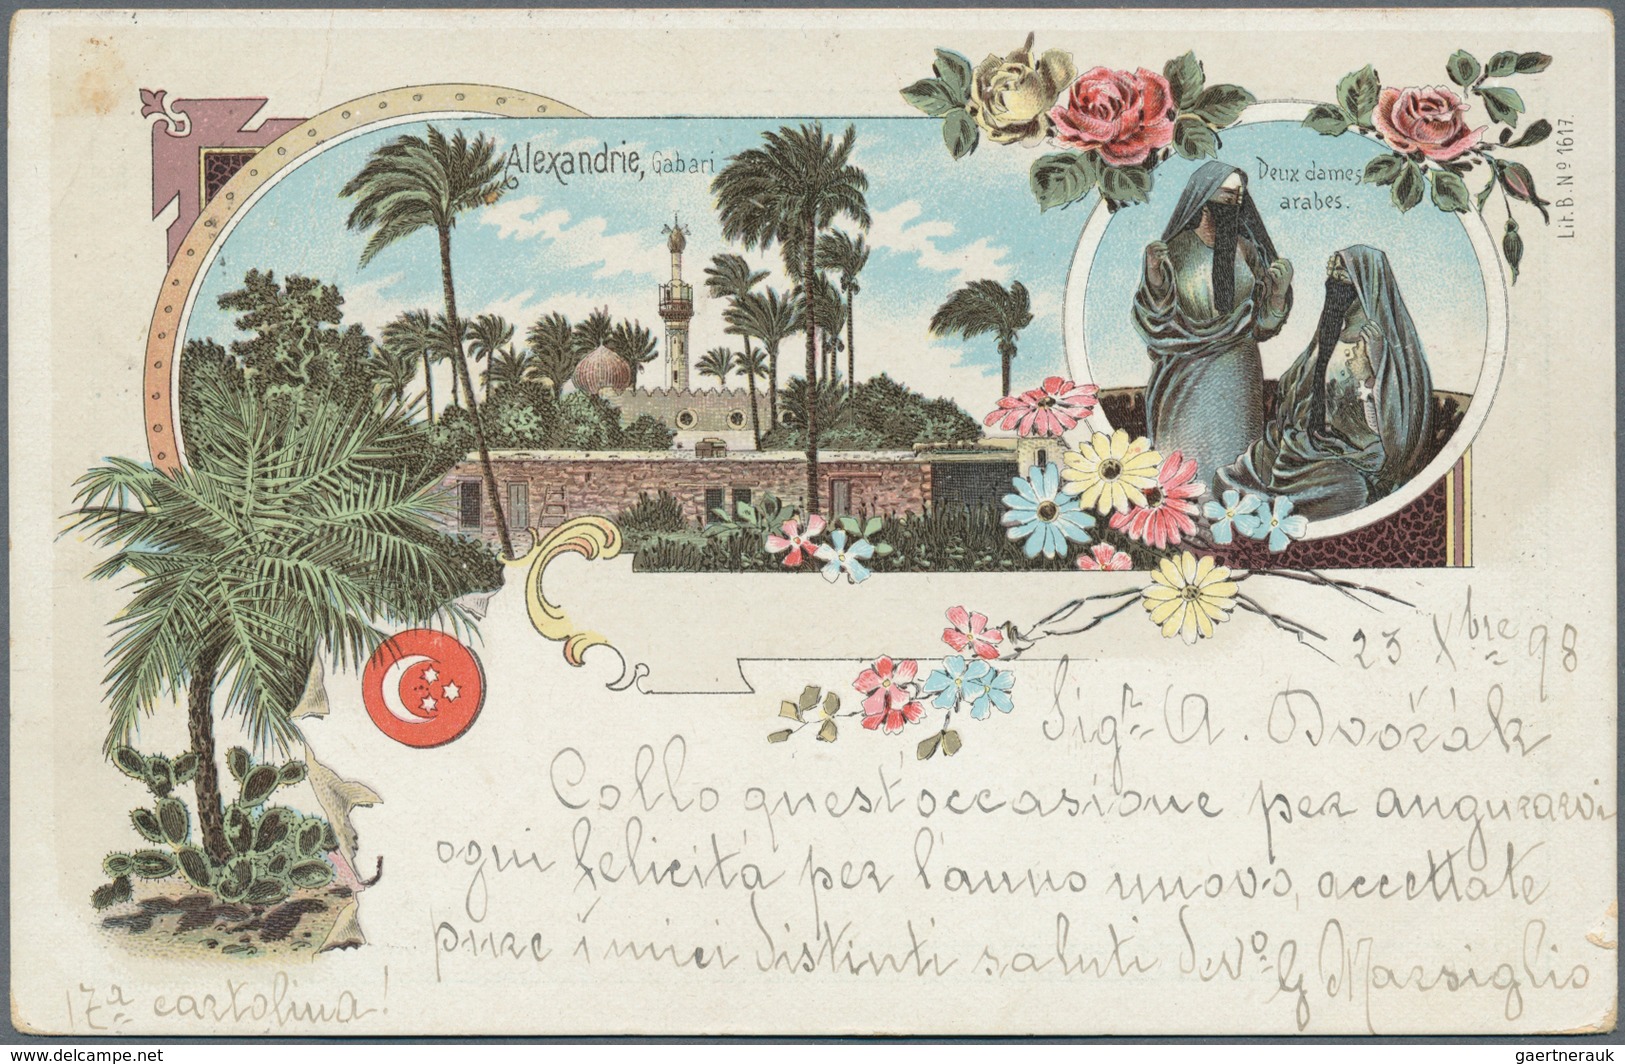 Alexandrie, Gabari
Deux dames
arabes.
Lit. B. Nº 1617.
23 Xbre 98
Sigr. A. Dvořák
Collo quest'occasione per augurarvi
ogni felicitá per l'anno nuovo, accettate
pure i miei distinti saluti Devo. G Marsiglio
17a cartolina!
www.delcampe.net
gaertnerauk